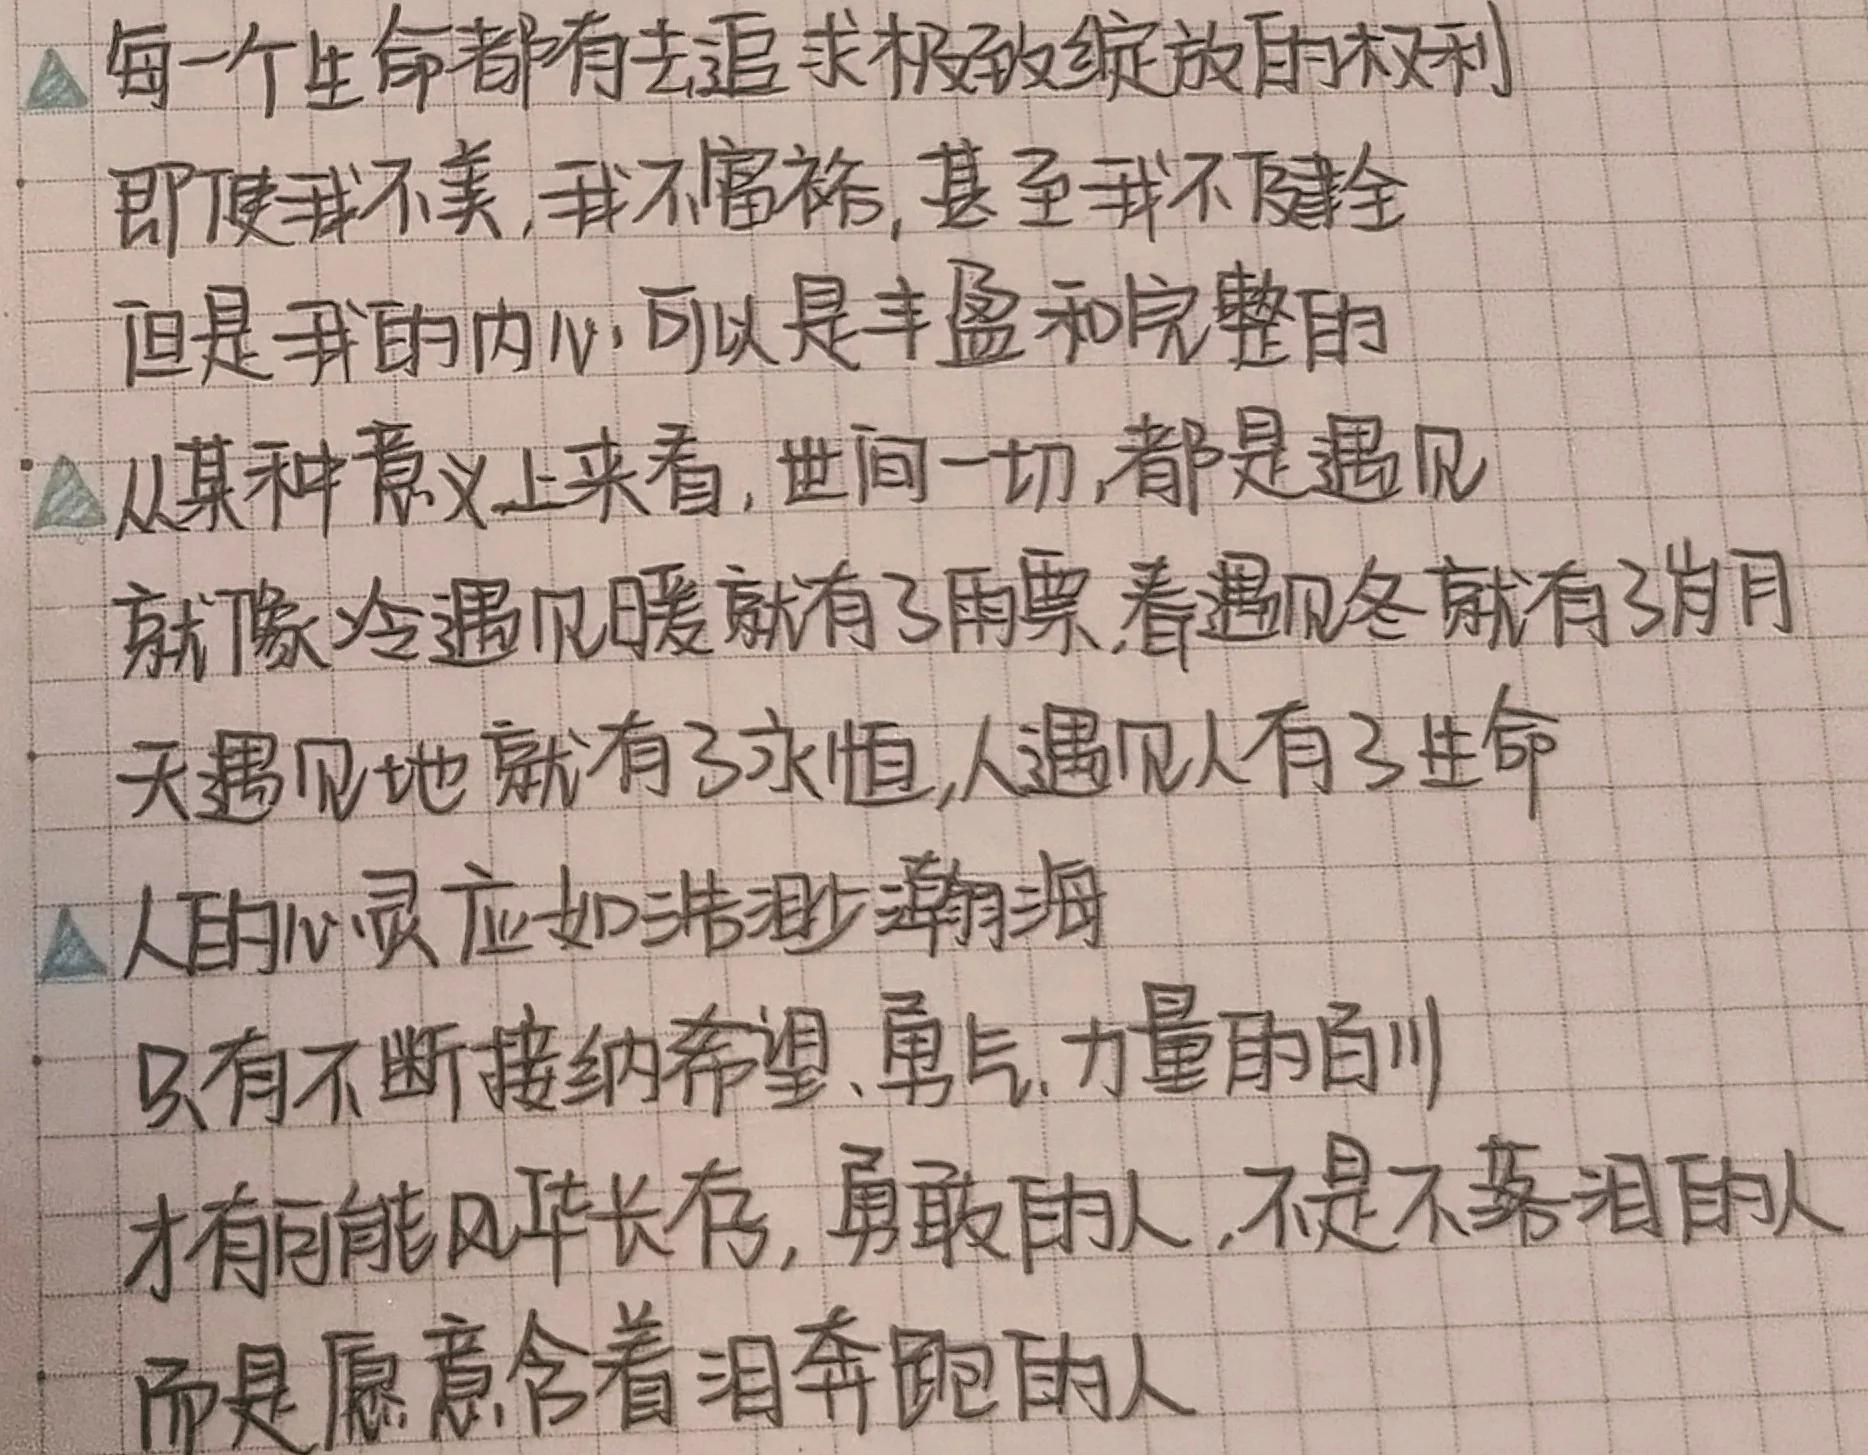 每一个生命都有去追求极致绽放的权利
即使我不美，我不富裕，甚至我不健全
但是我的内心可以是丰盈和完整的
从某种意义上来看，世间一切，都是遇见
就像冷遇见暖就有了雨票，看遇见冬就有了岁月
天遇见地就有了永恒，人遇见人有了生命
人的心灵应如浩渺瀚海
只有不断接纳希望、勇气、力量的百川
才有可能风华长存，勇敢的人，不是不落泪的人
而是愿意含着泪奔跑的人